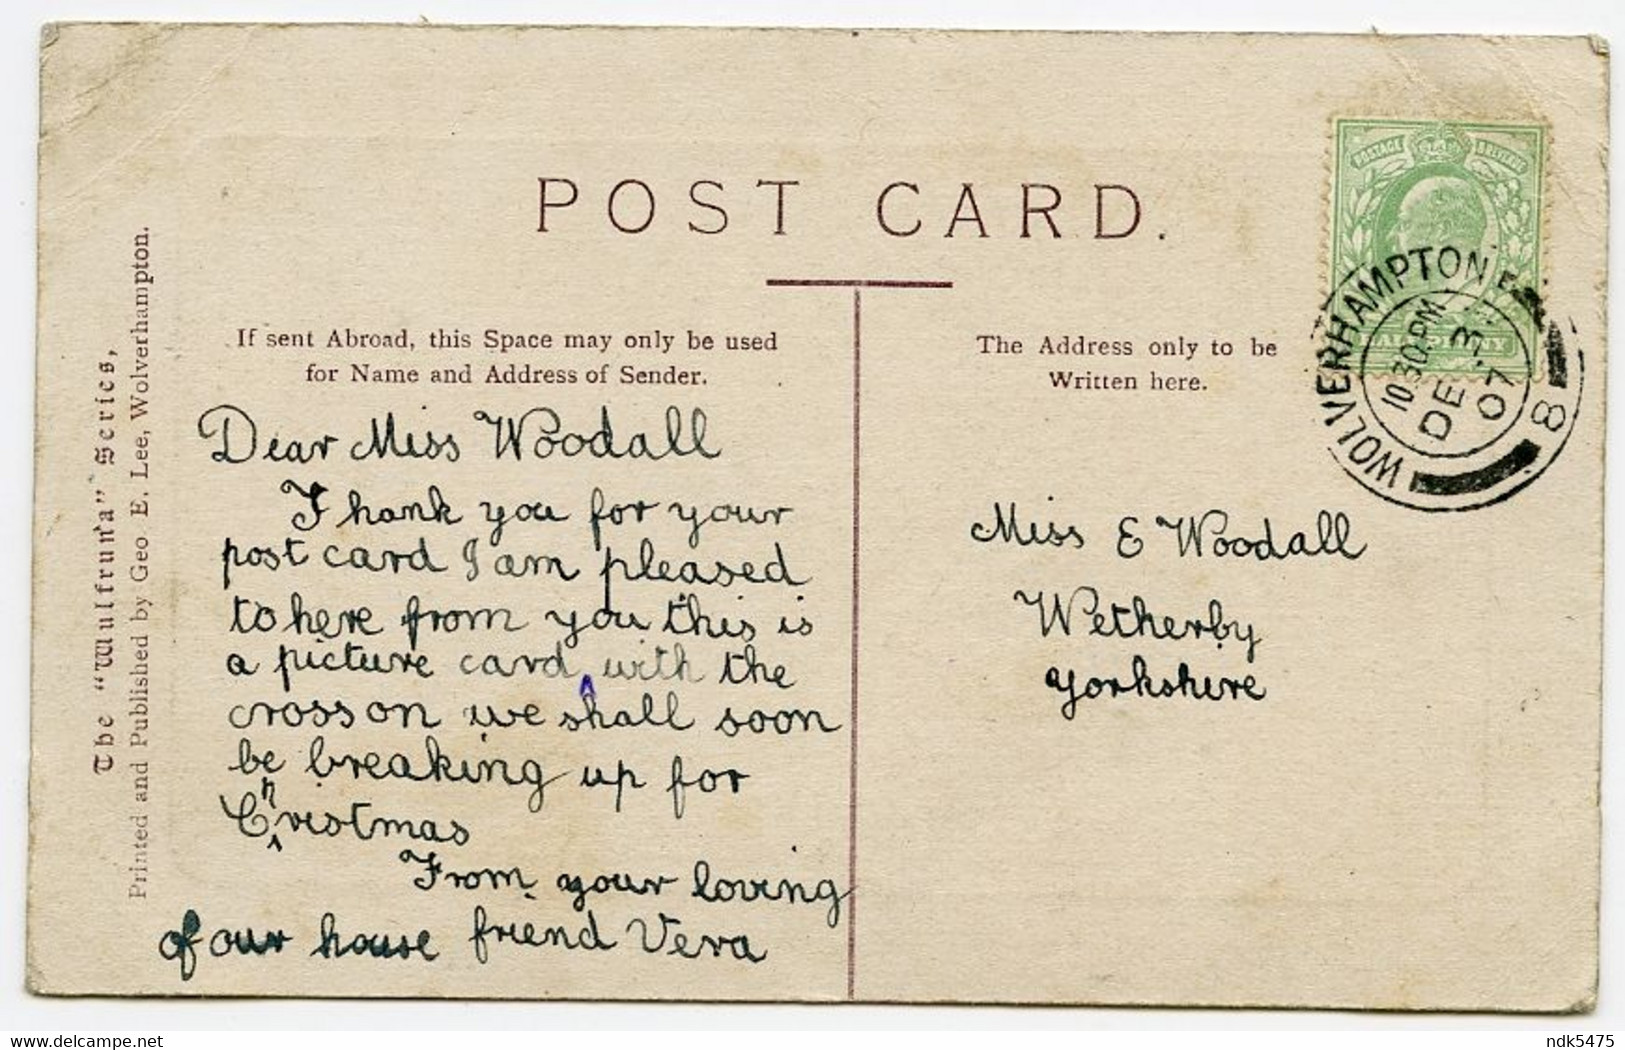 POST CARD.
The "Wulfruna" Series,
Printed and Published by Geo. E. Lee, Wolverhampton.
If sent Abroad, this Space may only be used
for Name and Address of Sender.
The Address only to be
Written here.
POSTAGE REVENUE
WOLVERHAMPTON
10 30 PM
DE 3
07
8
Dear Miss Woodall
Thank you for your
post card I am pleased
to here from you this is
a picture card ^ with the
cross on we shall soon
be breaking up for
Christmas
From your loving
friend Vera
of our house
Miss E Woodall
Wetherby
Yorkshire
ndk5475